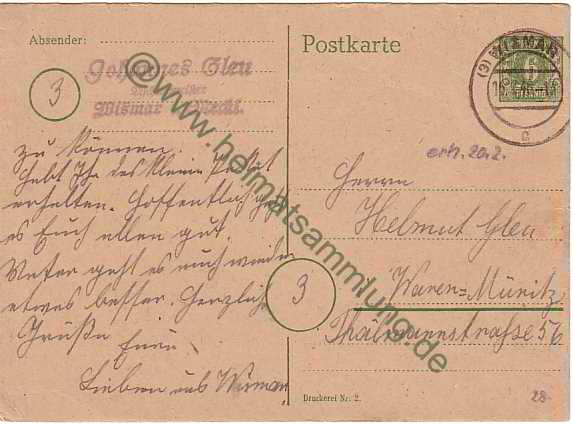 Absender:
Johannes Gleu
Wismar i. Meckl.
3
zu können.
Habt Ihr das kleine Paket
erhalten. Hoffentlich geht
es Euch allen gut.
Vater geht es auch wieder
etwas besser. Herzliche
Grüße
Eure
Lieben aus Wismar
Postkarte
(3) WISMAR
6
c
erh. 20.2.
Herrn
Helmut Gleu
3
Waren=Müritz
Thälmannstraße 56
Druckerei Nr. 2.
28.-
© www.heimatsammlung.de